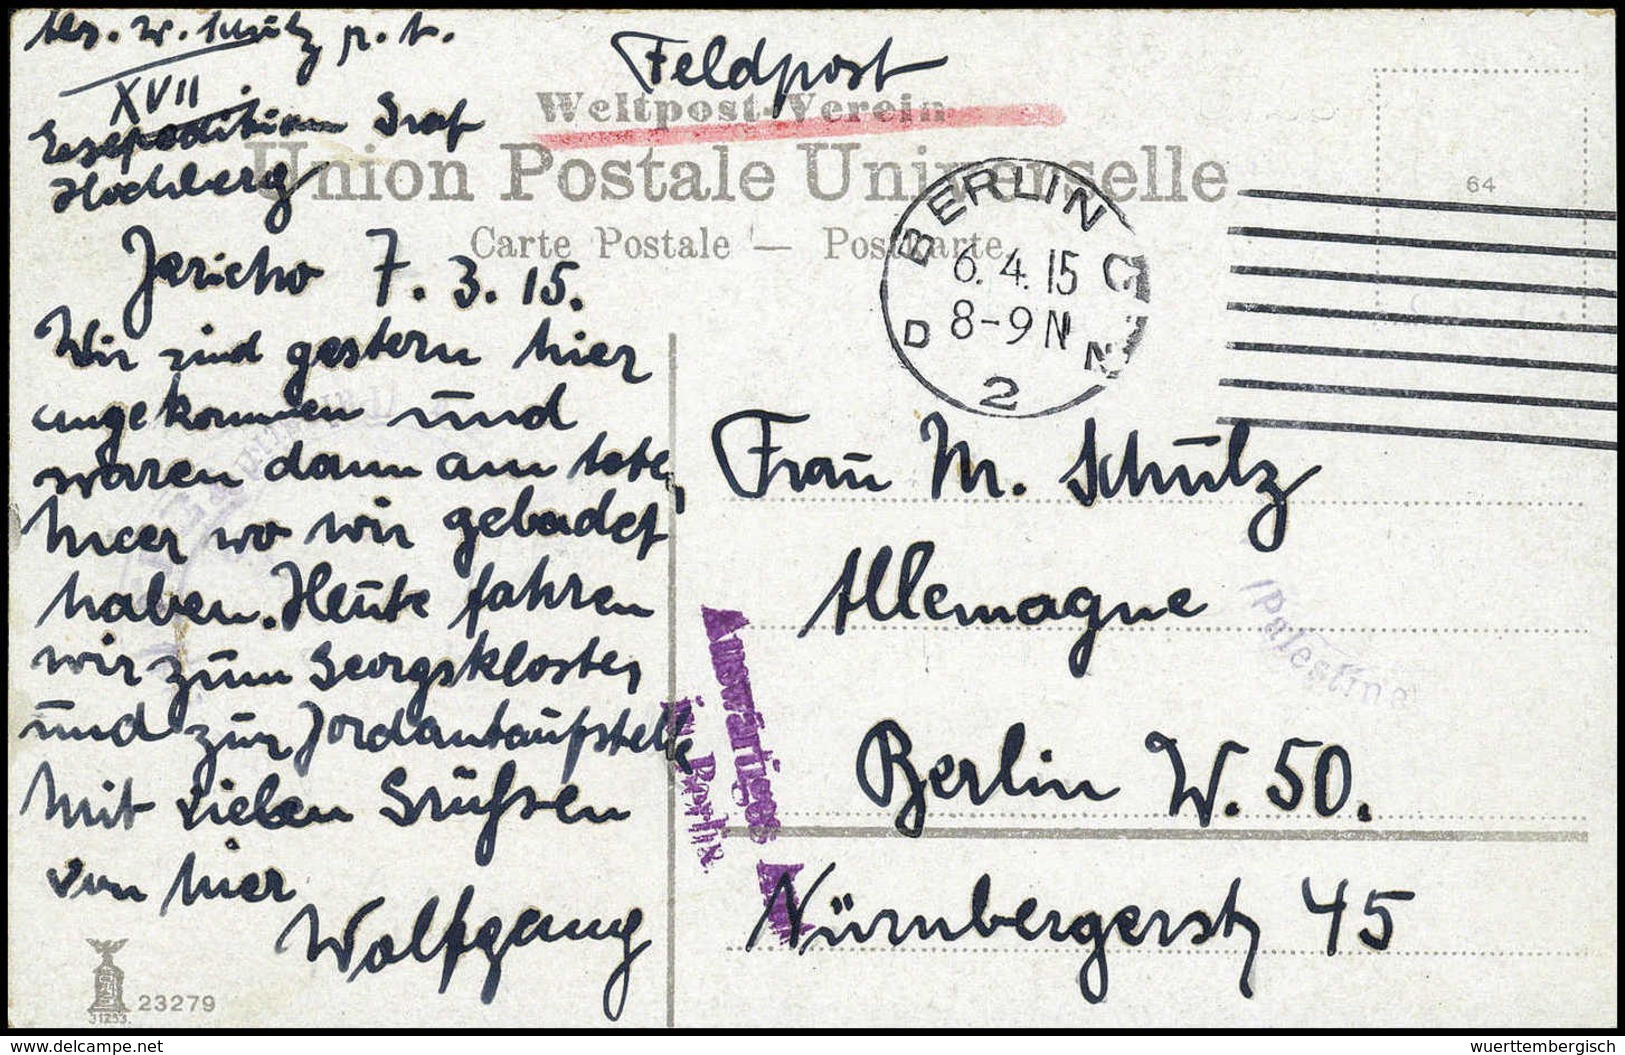 Abs. W. Schütz p. t.
XVII.
Expedition Graf
Hochberg
Feldpost
Weltpost-Verein
Union Postale Universelle
Carte Postale — Postkarte
64
BERLIN C
6.4.15
8-9N
D 2 N
Jericho 7.3.15.
Wir sind gestern hier
angekommen und
waren dann am toten
Meer wo wir gebadet
haben. Heute fahren
wir zum Georgskloster
und zur Jordantaufstelle
Mit vielen Grüssen
von hier
Wolfgang
Frau M. Schülz
Allemagne
Berlin W. 50.
Nürnbergerstr 45
Auswärtiges A
in Berlin
(Palestine
23279
31253
© www.delcampe.net
wuerttembergisch